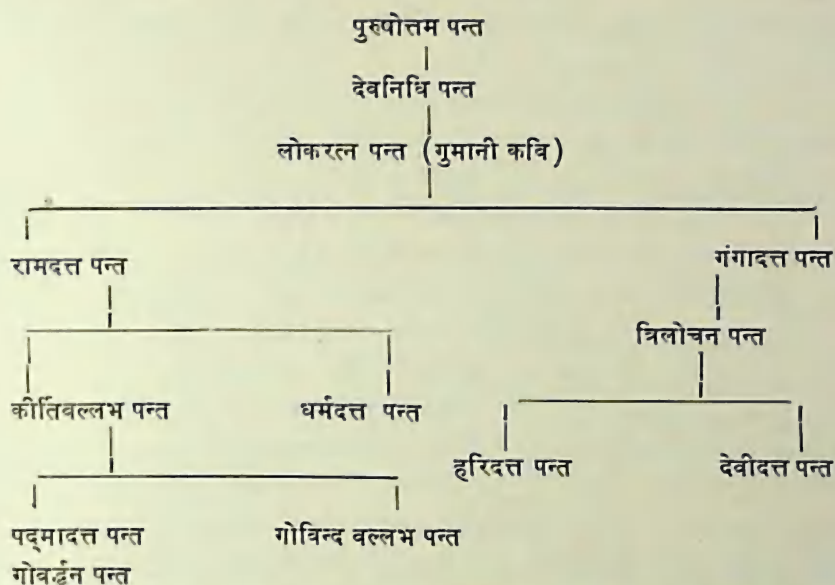 पुरुषोत्तम पन्त
देवनिधि पन्त
लोकरत्न पन्त (गुमानी कवि)
रामदत्त पन्त गंगादत्त पन्त
त्रिलोचन पन्त
कीर्तिवल्लभ पन्त धर्मदत्त पन्त
हरिदत्त पन्त देवीदत्त पन्त
पद्मादत्त पन्त गोविन्द वल्लभ पन्त
गोवर्द्धन पन्त